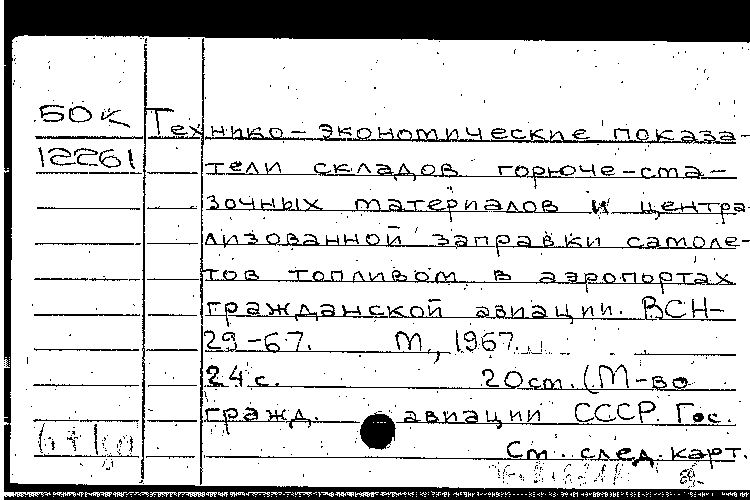 50к Технико-экономические показа-
12261 тели складов горюче-сма-
зочных материалов и центра
лизованной заправки самоле-
тов топливом в аэропортах
гражданской авиации. ВСН-
29-67. М., 1967.
24 с. 20 см. (М-во
гражд. авиации СССР. Гос.
См. след. карт.